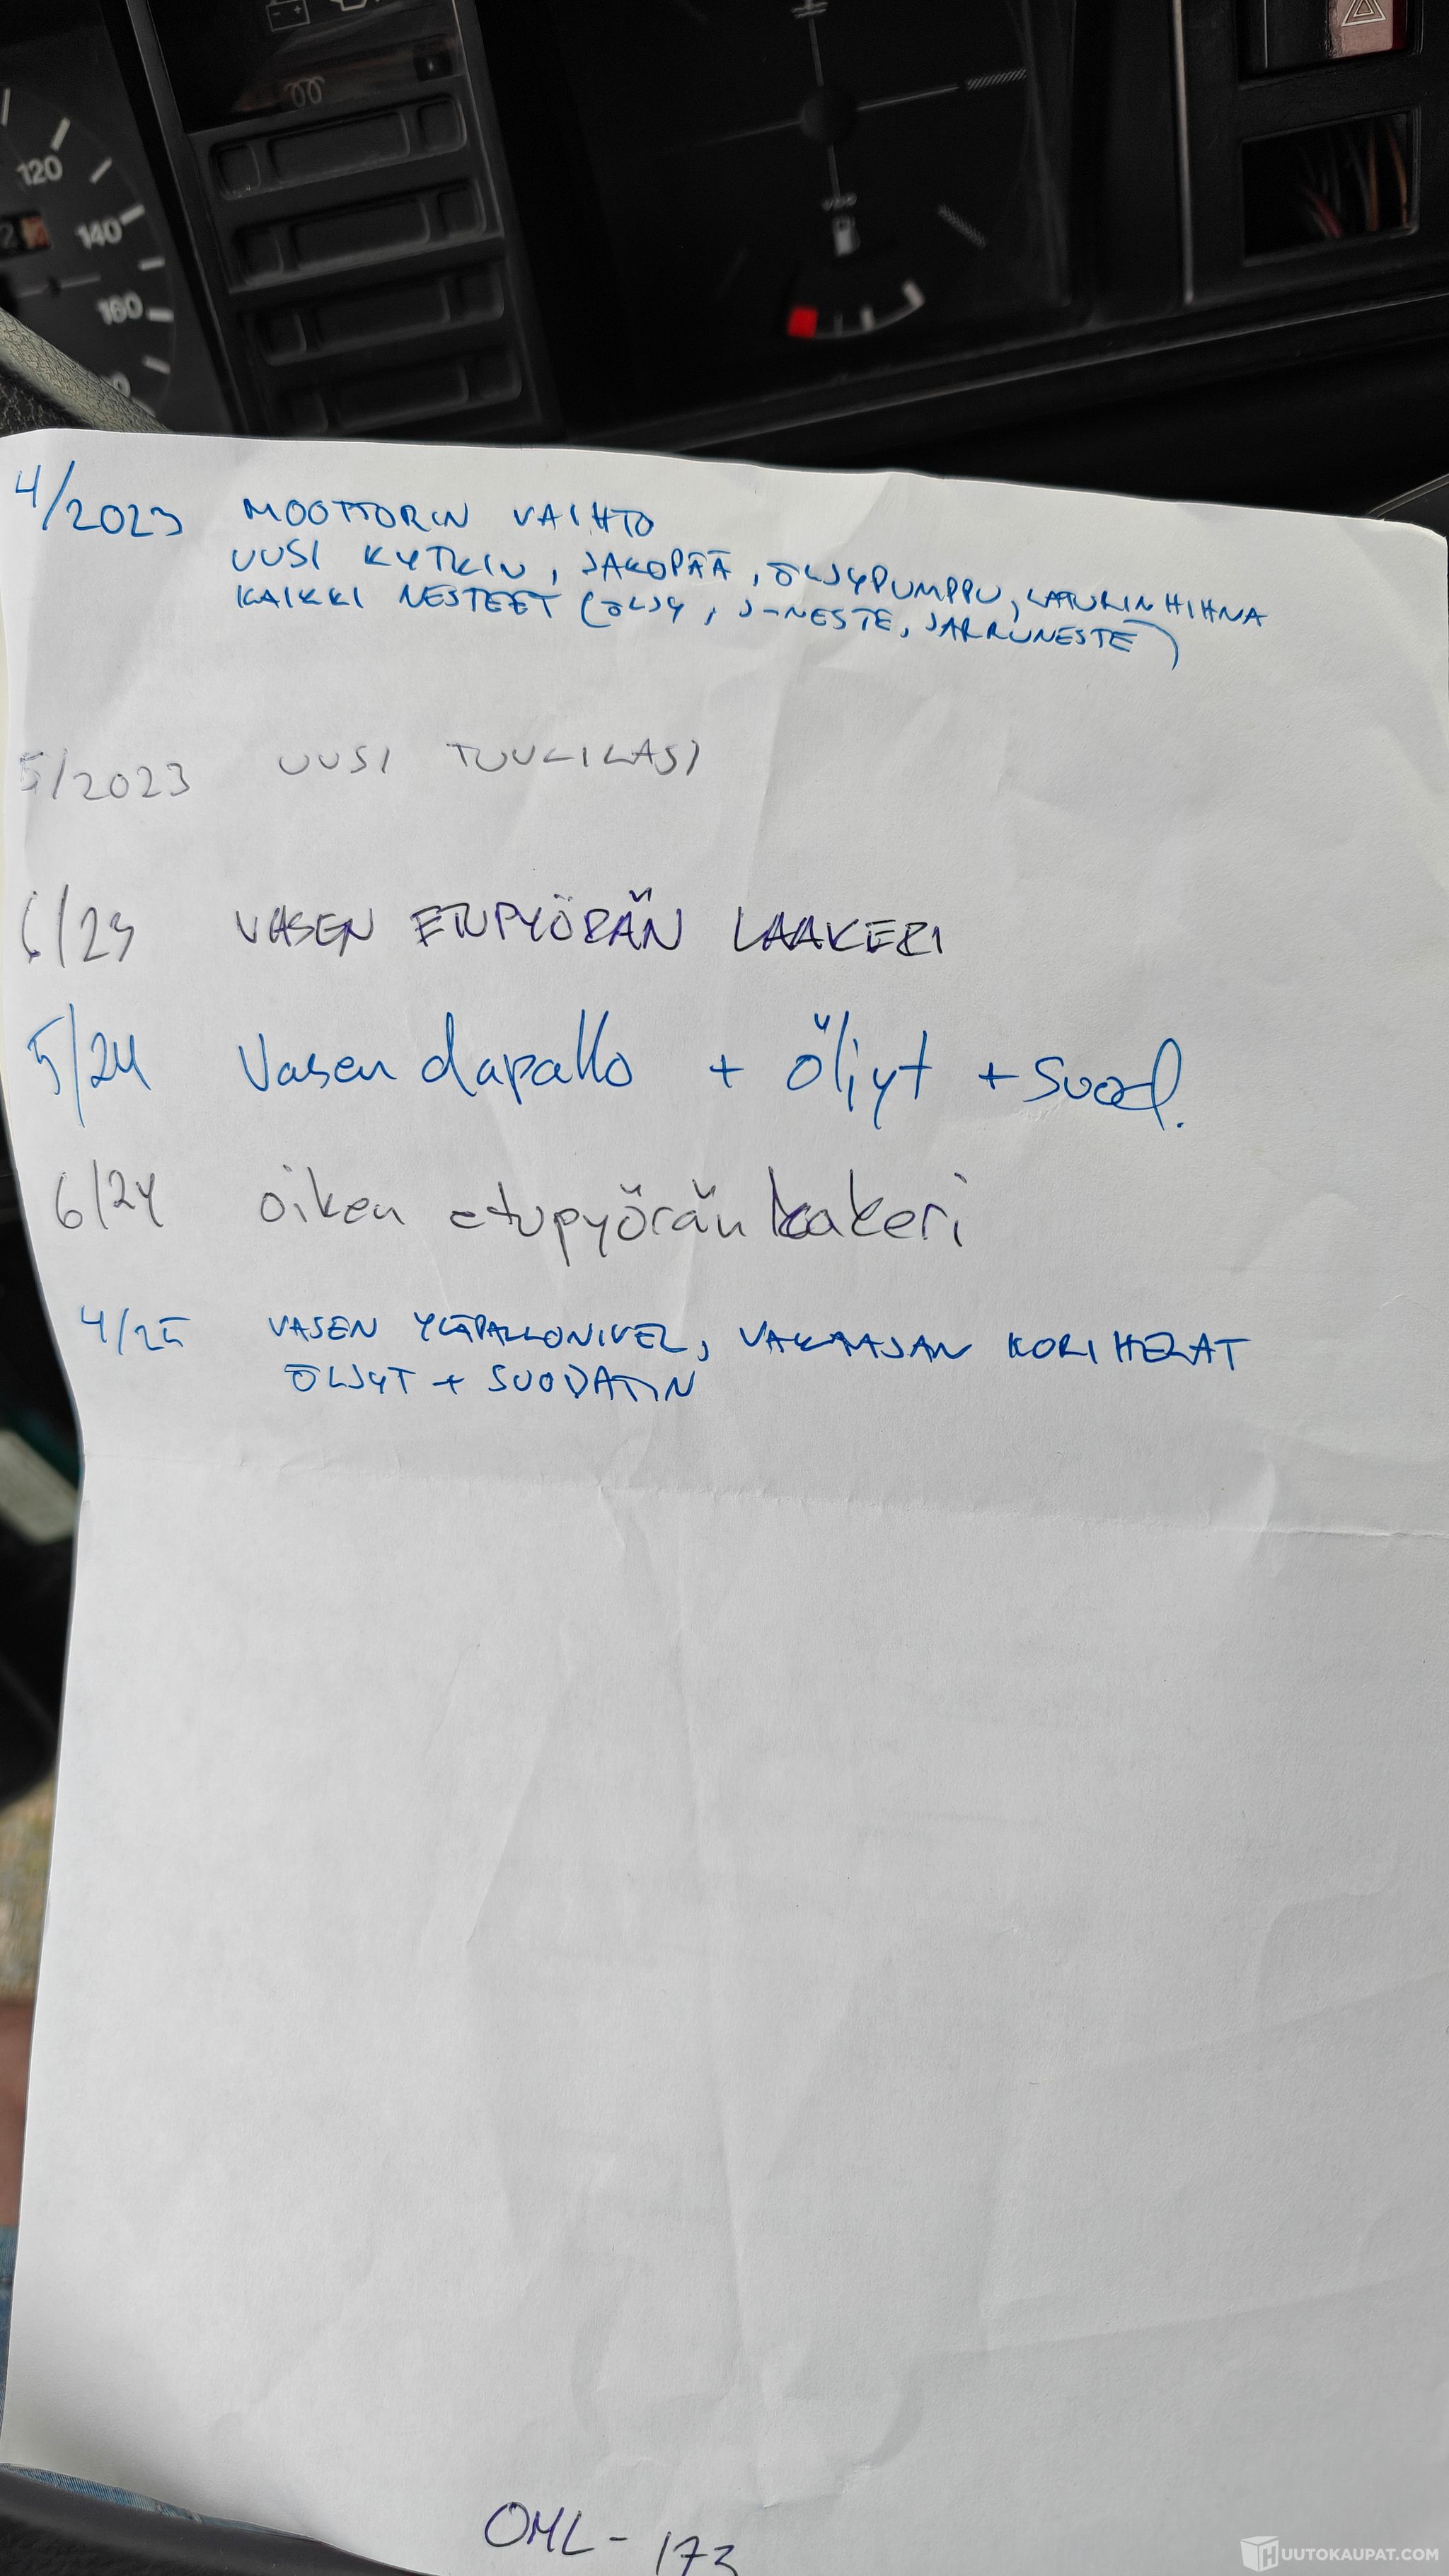 120
140
160
4/2023 MOOTTORIN VAIHTO
UUSI KYTKIN, JAKOPÄÄ, ÖLJYPUMPPU, LATURIN HIHNA
KAIKKI NESTEET (ÖLJY, J-NESTE, JARRUNESTE)
5/2023 UUSI TUULILASI
6/23 VASEN ETUPYÖRÄN LAAKERI
5/24 Vasen alapallo + öljyt + suod.
6/24 oikea etupyörän laakeri
4/25 VASEN YLÄPALLONIVEL, VAKAAJAN KORIHELAT
ÖLJYT + SUODATIN
OML-173
HUUTOKAUPAT.COM